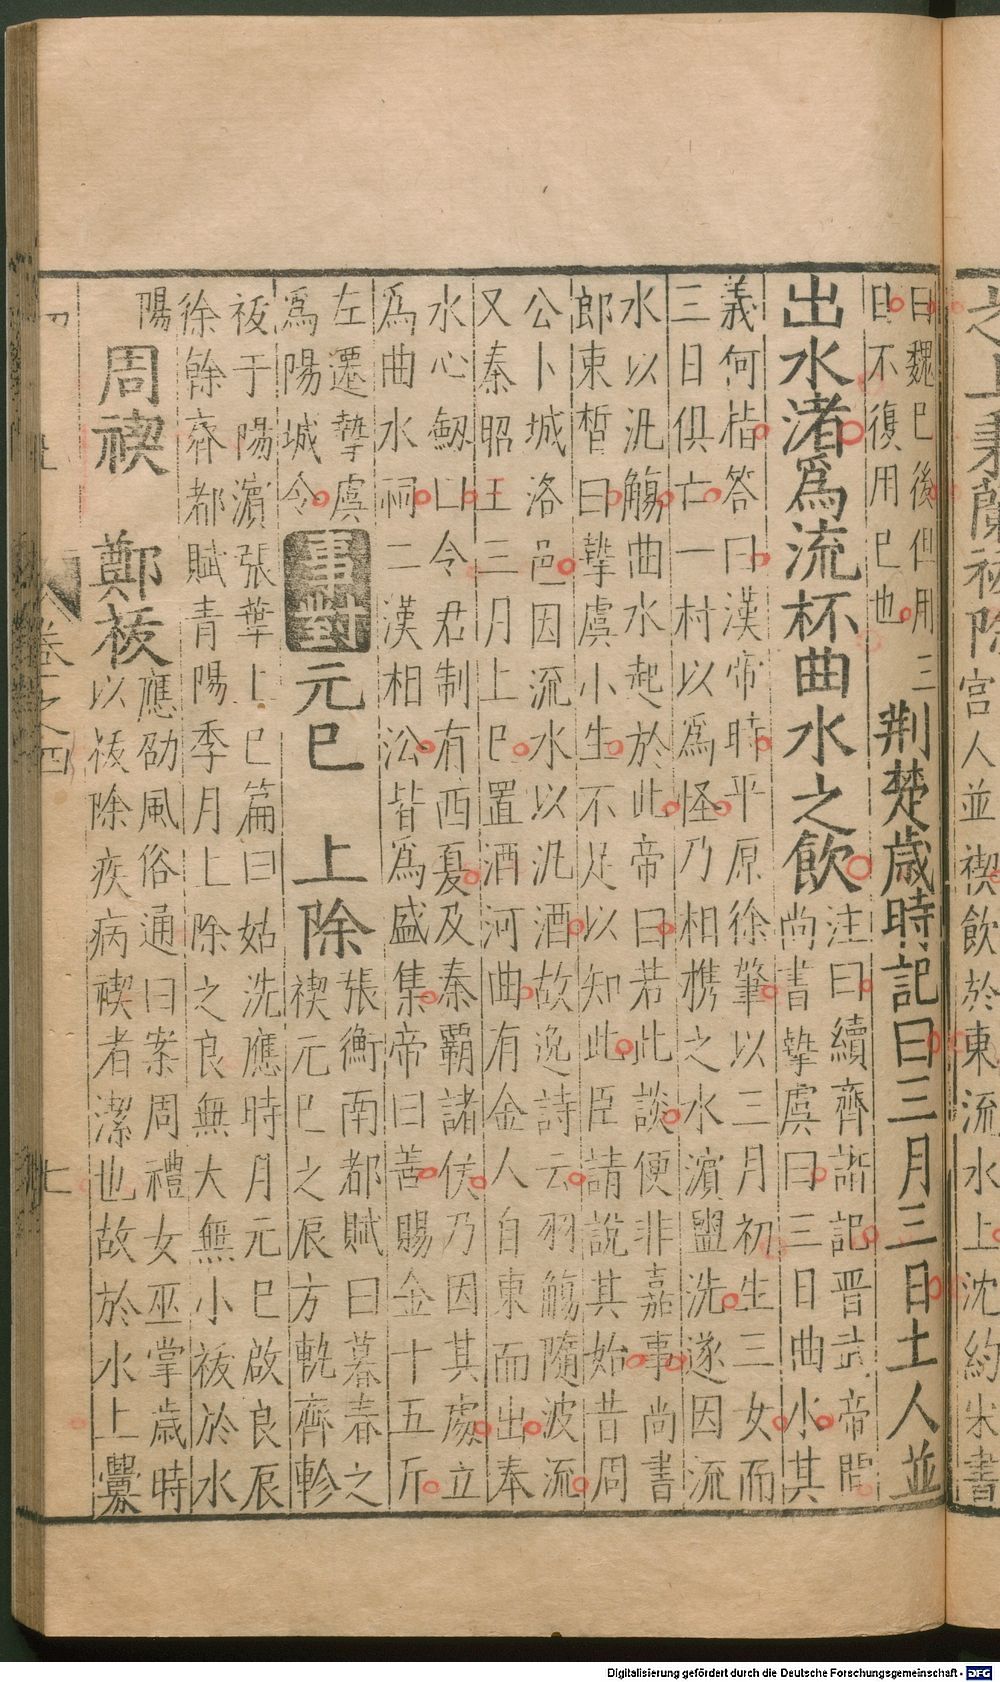 之上秉蘭祓除宮人並禊飲於東流水上沈約宋書
曰魏巳後但用三
日不復用巳也
荆楚歳時記曰三月三日土人並
出水渚爲流杯曲水之飲
注曰續齊諧記晋武帝問
尚書摯虞曰三日曲水其
義何楷答曰漢帝時平原徐肇以三月初生三女而
三日俱亡一村以爲怪乃相携之水濵盥洗遂因流
水以汎觴曲水起於此帝曰若此談便非嘉事尚書
郎束晳曰摯虞小生不足以知此臣請說其始昔周
公卜城洛邑因流水以汎酒故逸詩云羽觴隨波流
又秦昭王三月上巳置酒河曲有金人自東而出奉
水心劔曰令君制有西夏及秦霸諸侯乃因其處立
爲曲水祠二漢相沿皆爲盛集帝曰善賜金十五斤
左遷摯虞
爲陽城令
事對 元巳 上除
張衡南都賦曰暮春之
禊元巳之辰方軌齊軫
祓于陽濵張華上巳篇曰姑洗應時月元巳啟良辰
徐幹齊都賦青陽季月上除之良無大無小祓於水
陽
周禊 鄭祓
應劭風俗通曰案周禮女巫掌歳時
以祓除疾病禊者潔也故於水上釁
卷之四
七
Digitalisierung gefördert durch die Deutsche Forschungsgemeinschaft - DFG